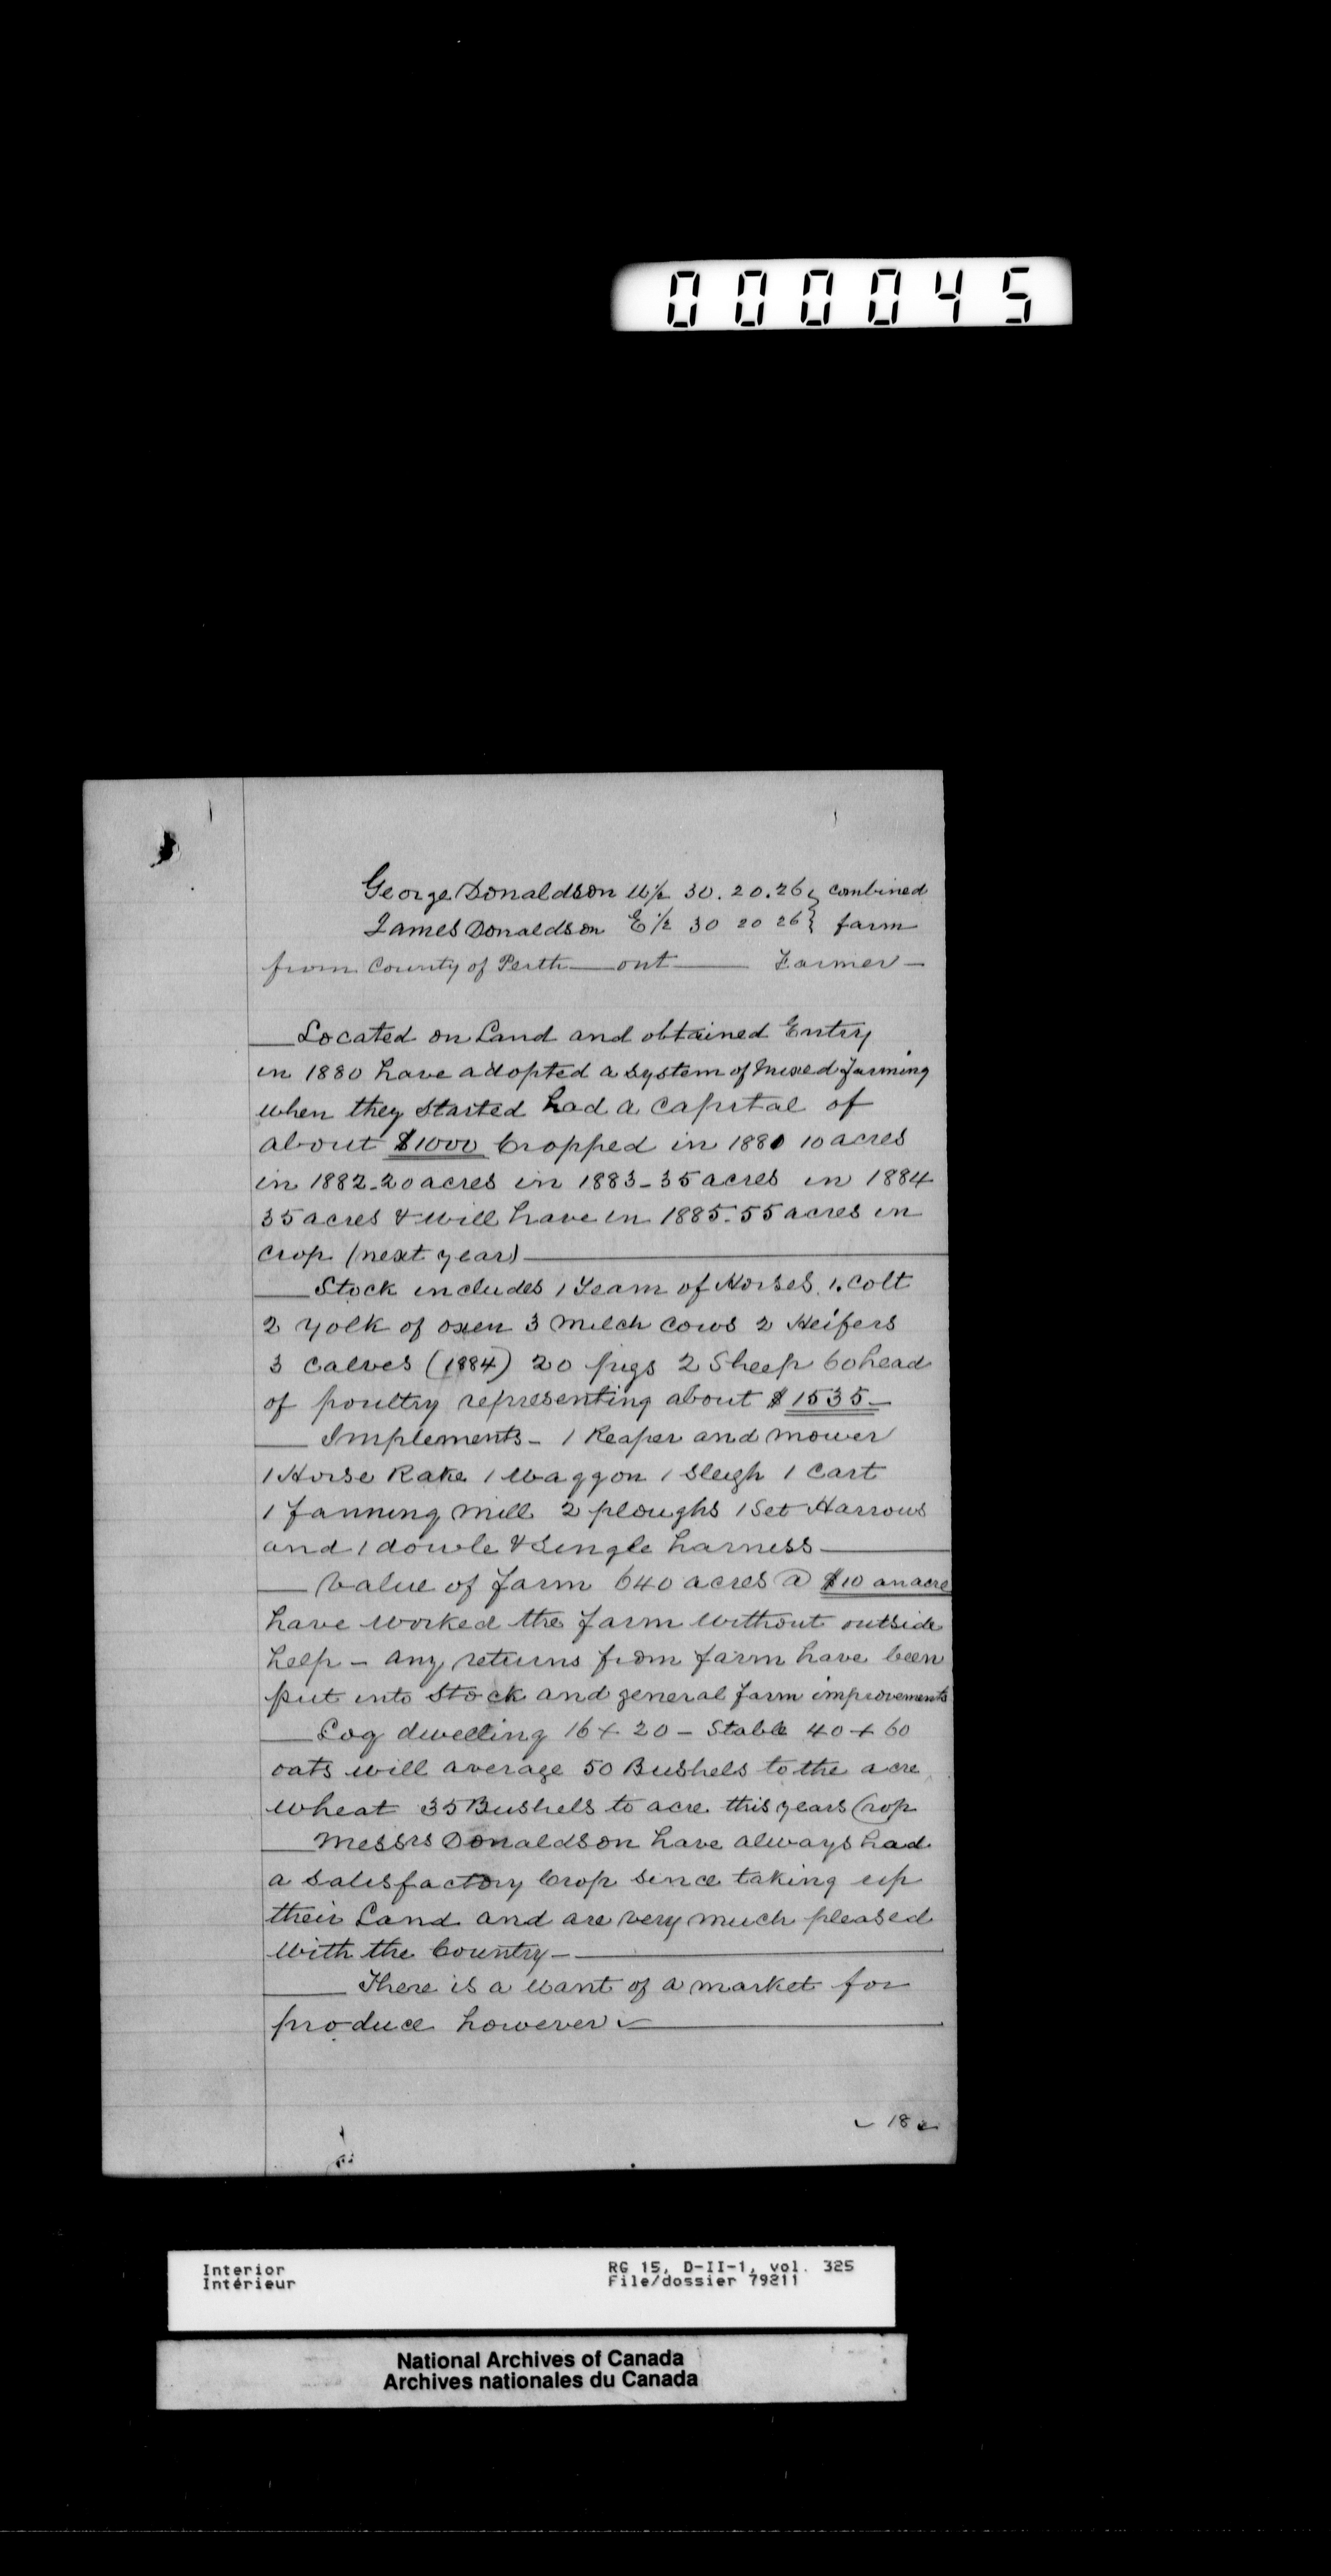 000045
George Donaldson W½ 30.20.26 } combined
James Donaldson E ½ 30 20 26 } farm
from County of Perth — ont — Farmer —
Located on Land and obtained Entry
in 1880 have adopted a system of Mixed farming
when they started had a capital of
about $1000 Cropped in 1881 10 acres
in 1882 - 20 acres in 1883 - 35 acres in 1884
35 acres & will have in 1885 - 55 acres in
crop (next year) —
Stock includes 1 Team of Horses 1. Colt
2 Yolk of oxen 3 Milch cows 2 Heifers
3 Calves (1884) 20 pigs 2 Sheep 60 head
of poultry representing about $1535 —
Implements - 1 Reaper and mower
1 Horse Rake 1 Waggon 1 Sleigh 1 Cart
1 fanning Mill 2 ploughs 1 Set Harrows
and 1 douvle & Single harness —
Value of farm 640 acres @ $10 an acre
have worked the farm without outside
help - any returns from farm have been
put into Stock and general farm improvements
Log dwelling 16 x 20 - Stable 40 x 60
oats will average 50 Bushels to the acre
wheat 35 Bushels to acre this years Crop
Messrs Donaldson have always had
a satisfactory Crop since taking up
their Land and are very much pleased
with the Country —
There is a want of a market for
produce however —
18
Interior RG 15, D-II-1, vol. 325
Intérieur File/dossier 79211
National Archives of Canada
Archives nationales du Canada